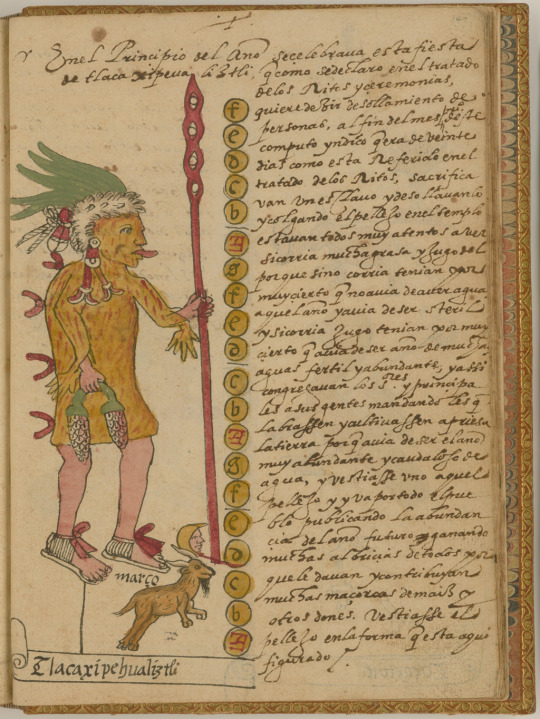 En el Principio del Año se celebrava esta fiesta
de tlacaxipeualiztli, q como se declaro en el tratado
de los Ritos y ceremonias,
quiere dezir desollamiento de
personas, al fin del mes
computo yndico q era de veinte
dias como esta Referido en el
tratado de los Ritos, sacrifica
van Un esclavo y desollavanlo
y colgando el pellejo en el templo
estavan todos muy atentos a ver
si corria mucha grasa y jugo del
porque si no corria tenian por
muy cierto q no avia de aver agua
aquel año y avia de ser steril
y si corria jugo tenian por muy
cierto q avia de ser año de mucha
aguas fertil y abundante, y assi
congregavan los s.res y principa
les a sus gentes mandando les q
labrassen y cultivassen apriesa
la tierra porq avia de ser el año
muy abundante y caudaloso de
agua, y vestiasse uno aquel
pellejo y yva por todo el pue
blo publicando la abundan
cia del año futuro ganando
muchas albricias de todos por
que le davan y contribuyan
muchas maçorcas de maiz y
otros dones. Vestiasse el
pellejo en la forma q esta aqui
figurado.
f
e
d
c
b
A
g
f
e
d
c
b
A
g
f
e
d
c
b
A
março
Tlacaxipehualiztli